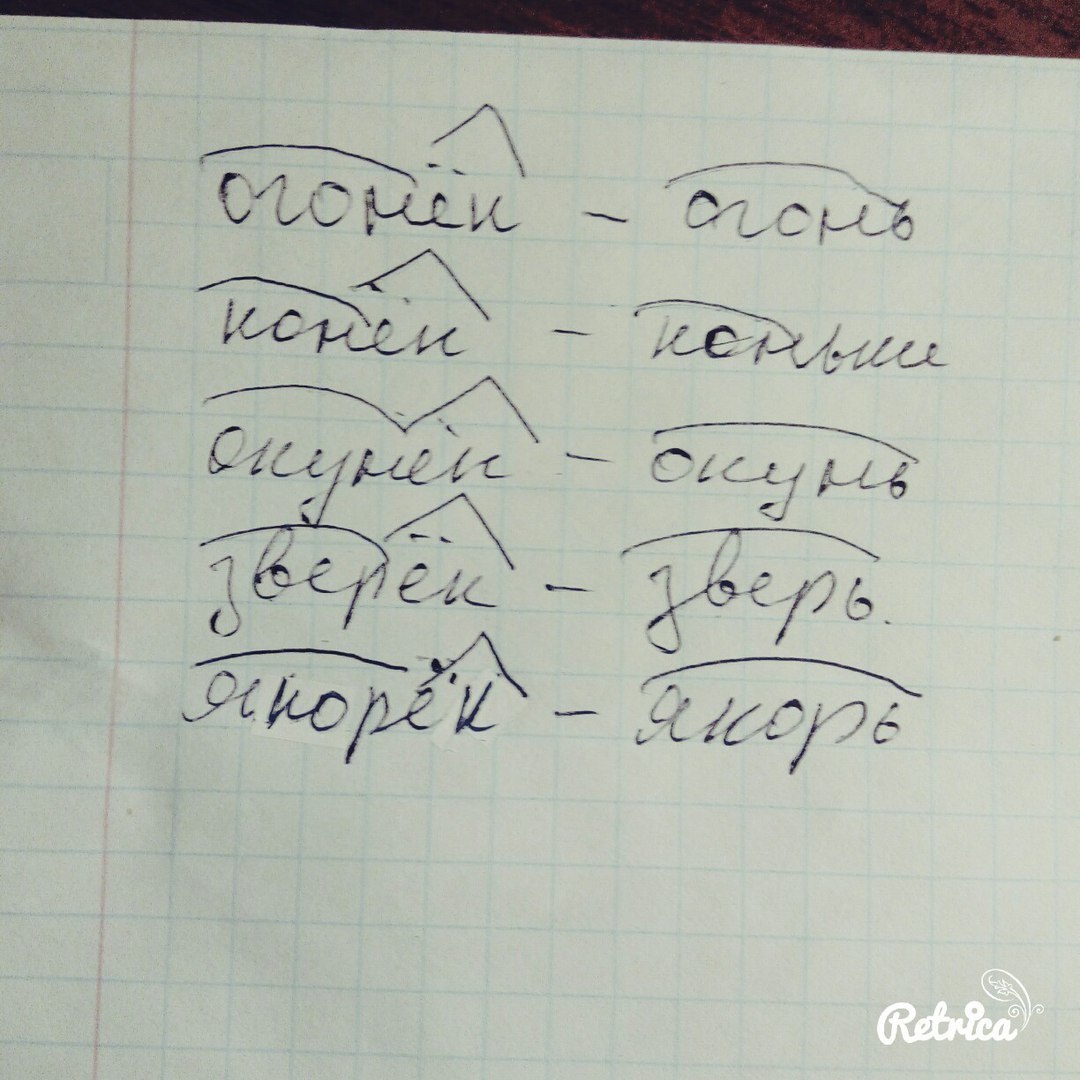 огонёк - огонь
конёк - коньки
окунёк - окунь
зверёк - зверь.
якорёк - якорь
Retrica